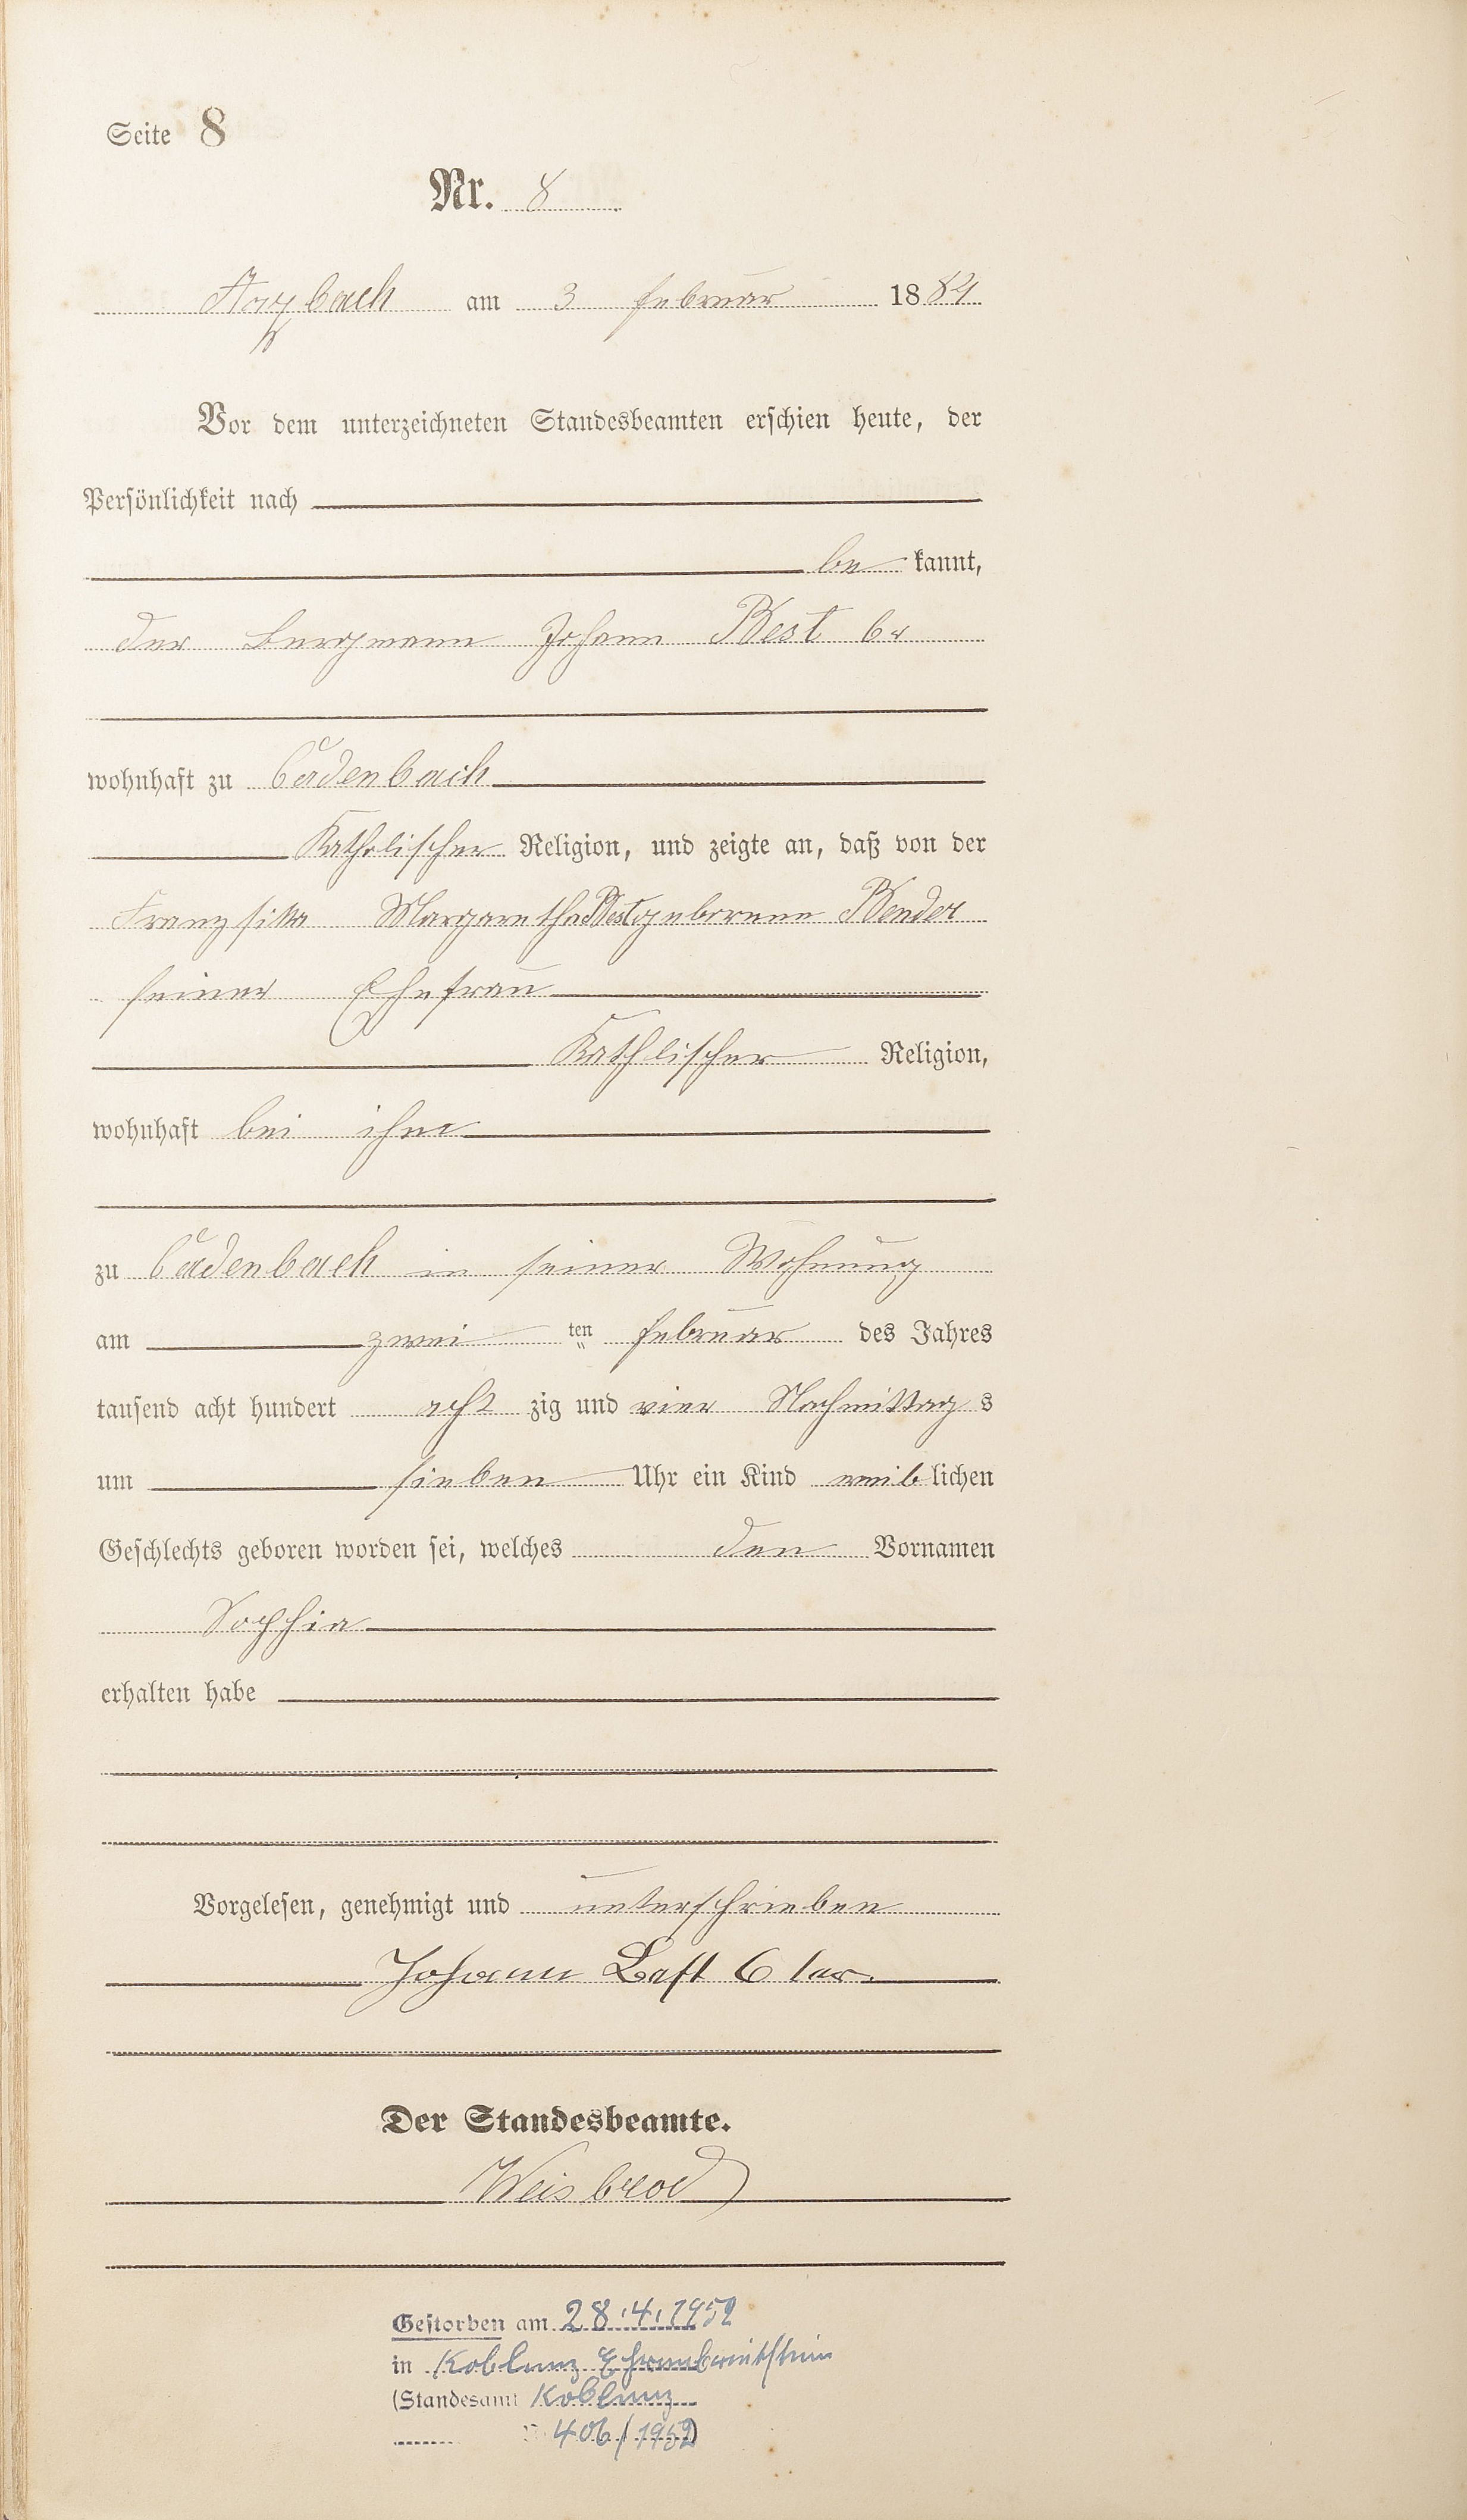 Seite 8
Nr. 8
Arzbach am 3 Februar 1884
Vor dem unterzeichneten Standesbeamten erschien heute, der
Persönlichkeit nach
be kannt,
der Bergmann Johann Best 6r
wohnhaft zu Cadenbach
Katholischer Religion, und zeigte an, daß von der
Franzsika Margaretha Best geborene Bender
seiner Ehefrau
Kathlischer Religion,
wohnhaft bei ihm
zu Cadenbach in seiner Wohnung
am zwei ten Februar des Jahres
tausend acht hundert acht zig und vier Nachmittag s
um sieben Uhr ein Kind weib lichen
Geschlechts geboren worden sei, welches den Vornamen
Sophia
erhalten habe
Vorgelesen, genehmigt und unterschrieben
Johann Best 6 ter
Der Standesbeamte.
Weisbrod
Gestorben am 28.4.1952
in Koblenz Ehrenbreitstein
(Standesamt Koblenz
406/1952)